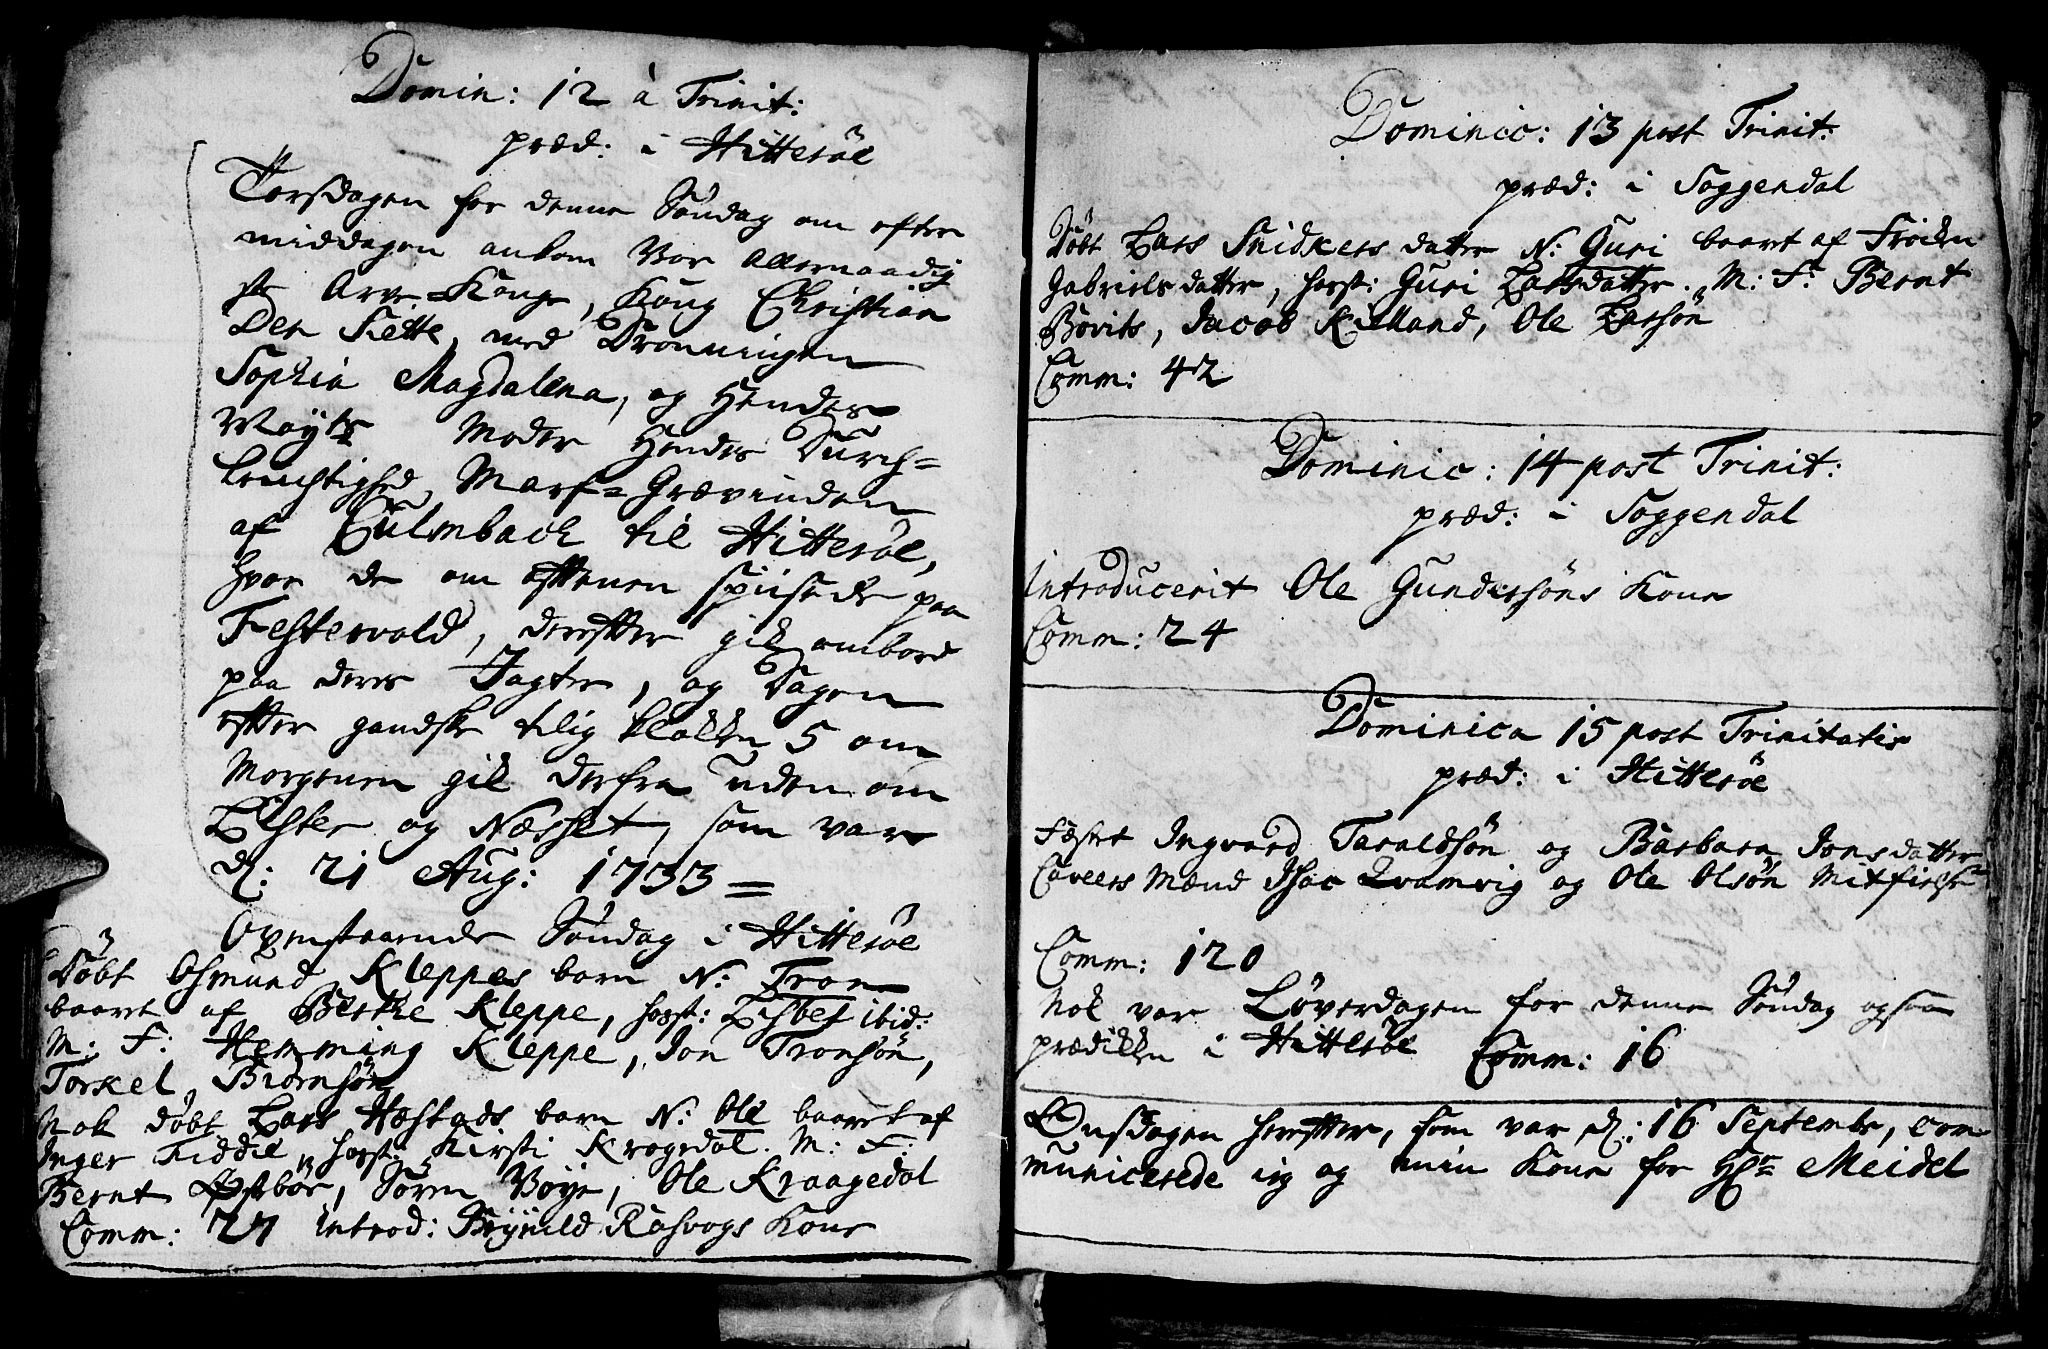 Domin: 12 à Trinit:
præd: i Hitterøe
Torsdagen for denne Søndag om efter
middagen ankom Vor Allernaadig
ste Arve-Konge, Kong Christian
Den Siette, med Dronningen
Sophia Magdalena, og Hendes
Mayts Moder Hendes Durch-
leuchtighed Marf-Grævinden
af Culmbach til Hitterøe,
hvor de om afftenen spiisede paa
Festervold, derefter gik ombord
paa deres Jagter, og Dagen
effter gandske tilig klokken 5 om
Morgenen gik derfra uden om
Lister og Næsset, som var
d: 21 Aug: 1733 =
Ovenstaaende Søndag i Hitterøe
Døbt Osmund Kleppes barn N: Tron
baaret af Berthe Kleppe, host: Lisbet ibid:
M: F: Hemming Kleppe, Jon Tronsøn,
Torkel Biørnsøn
Nok døbt Lars Hæstads barn N: Ole baaret af
Inger Fiddie, host: Kirsti Krogedal. M: F:
Bernt Østebøe, Søren Bøye, Ole Kraagedal
Comm: 27 introd: Brynild Rasvogs Kone
Dominic: 13 post Trinit:
præd: i Soggendal
Døbt Lars Snidkers datter N: Guri baaret af Frøken
Gabrielsdatter, host: Guri Larsdatter. M: F: Bernt
Bovits, Jacob Kielland, Ole Larsøn
Comm: 42
Dominic: 14 post Trinit:
præd: i Soggendal
Introducerit Ole Gundersøns Kone
Comm: 24
Dominica 15 post Trinitatis
præd: i Hitterøe
Fæstet Ingvard Taraldsøn og Barbara Jonsdatter
Caveers Mænd Isac Qvamvig og Ole Olsøn
Comm: 120
Nok var Løverdagen for denne Søndag ogsaa
prædikken i Hitterøe Comm: 16
Onsdagen hereffter, som var d: 16 Septembr, com
municerede ieg og min Kone for Hr Meidel